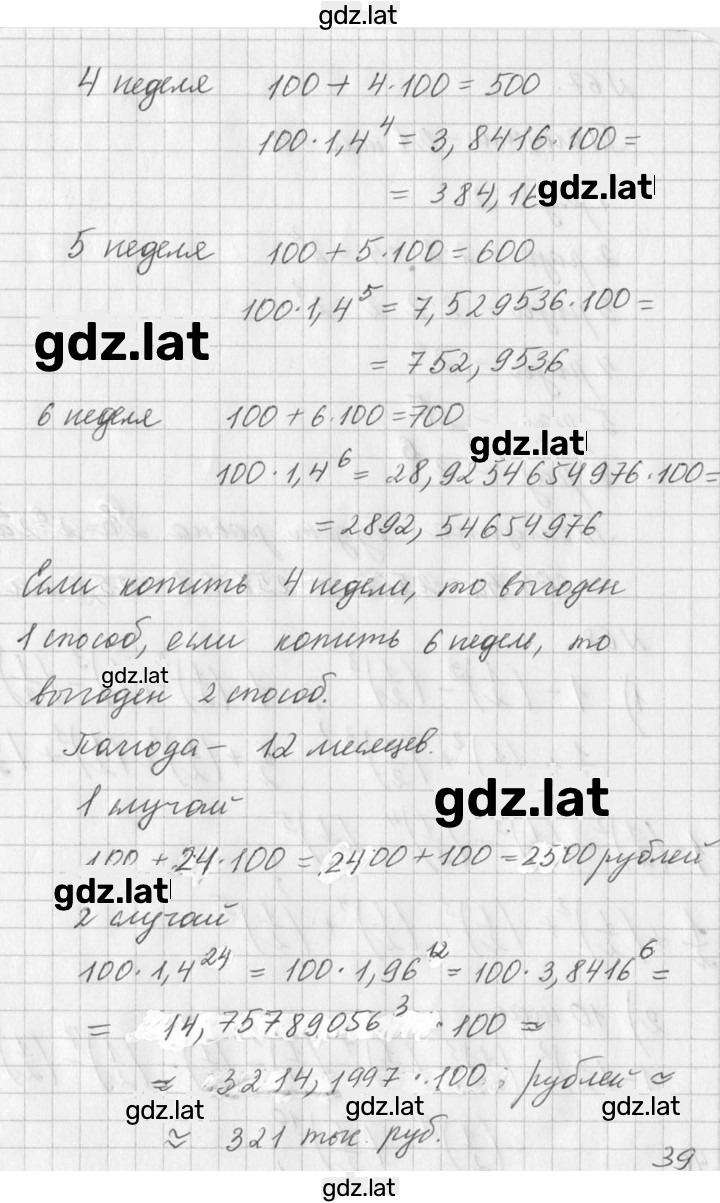 gdz.lat
4 неделя 100 + 4·100 = 500
100·1,4⁴ = 3,8416·100 =
= 384,16
gdz.lat
5 неделя 100 + 5·100 = 600
100·1,4⁵ = 7,529536·100 =
gdz.lat
= 752,9536
6 неделя 100 + 6·100 = 700
gdz.lat
100·1,4⁶ = 28,9254654976·100 =
= 2892,54654976
Если копить 4 недели, то выгоден
1 способ, если копить 6 недел, то
gdz.lat
выгоден 2 способ.
Полгода – 12 месяцев.
1 случай
gdz.lat
100 + 24·100 = 2400 + 100 = 2500 рублей
gdz.lat
2 случай
100·1,4²⁴ = 100·1,96¹² = 100·3,8416⁶ =
= 14,75789056³ ·100 ≈
≈ 3214,1997·100 рублей ≈
gdz.lat gdz.lat gdz.lat
≈ 321 тыс. руб.
39
gdz.lat